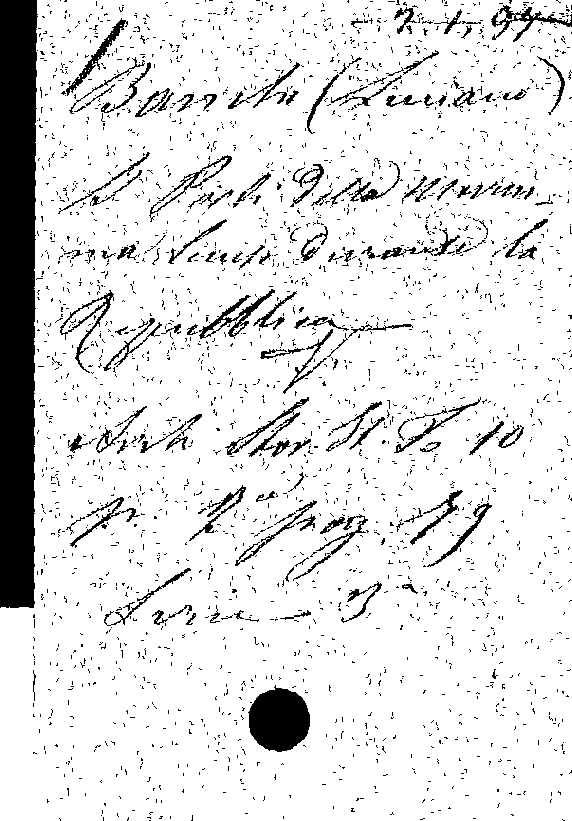 2.1.94
Banchi (Luciano)
I Porti della Marem-
ma Senese durante la
Repubblica
V.
Arch. Stor. It. To 10
P. 2a pag. 79
Serie 3a